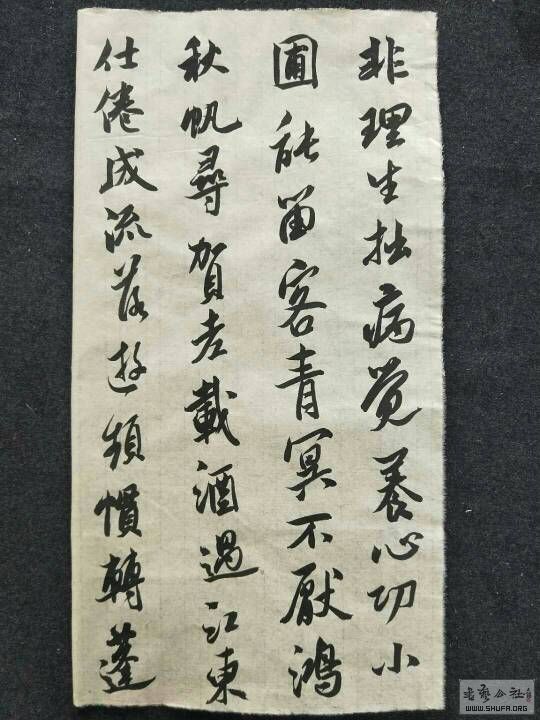 非理生拙病覺養心功小
圃能留客青冥不厭鴻
秋帆尋賀老載酒過江東
仕倦成流落遊頻慣轉蓬
WWW.SHUFA.ORG